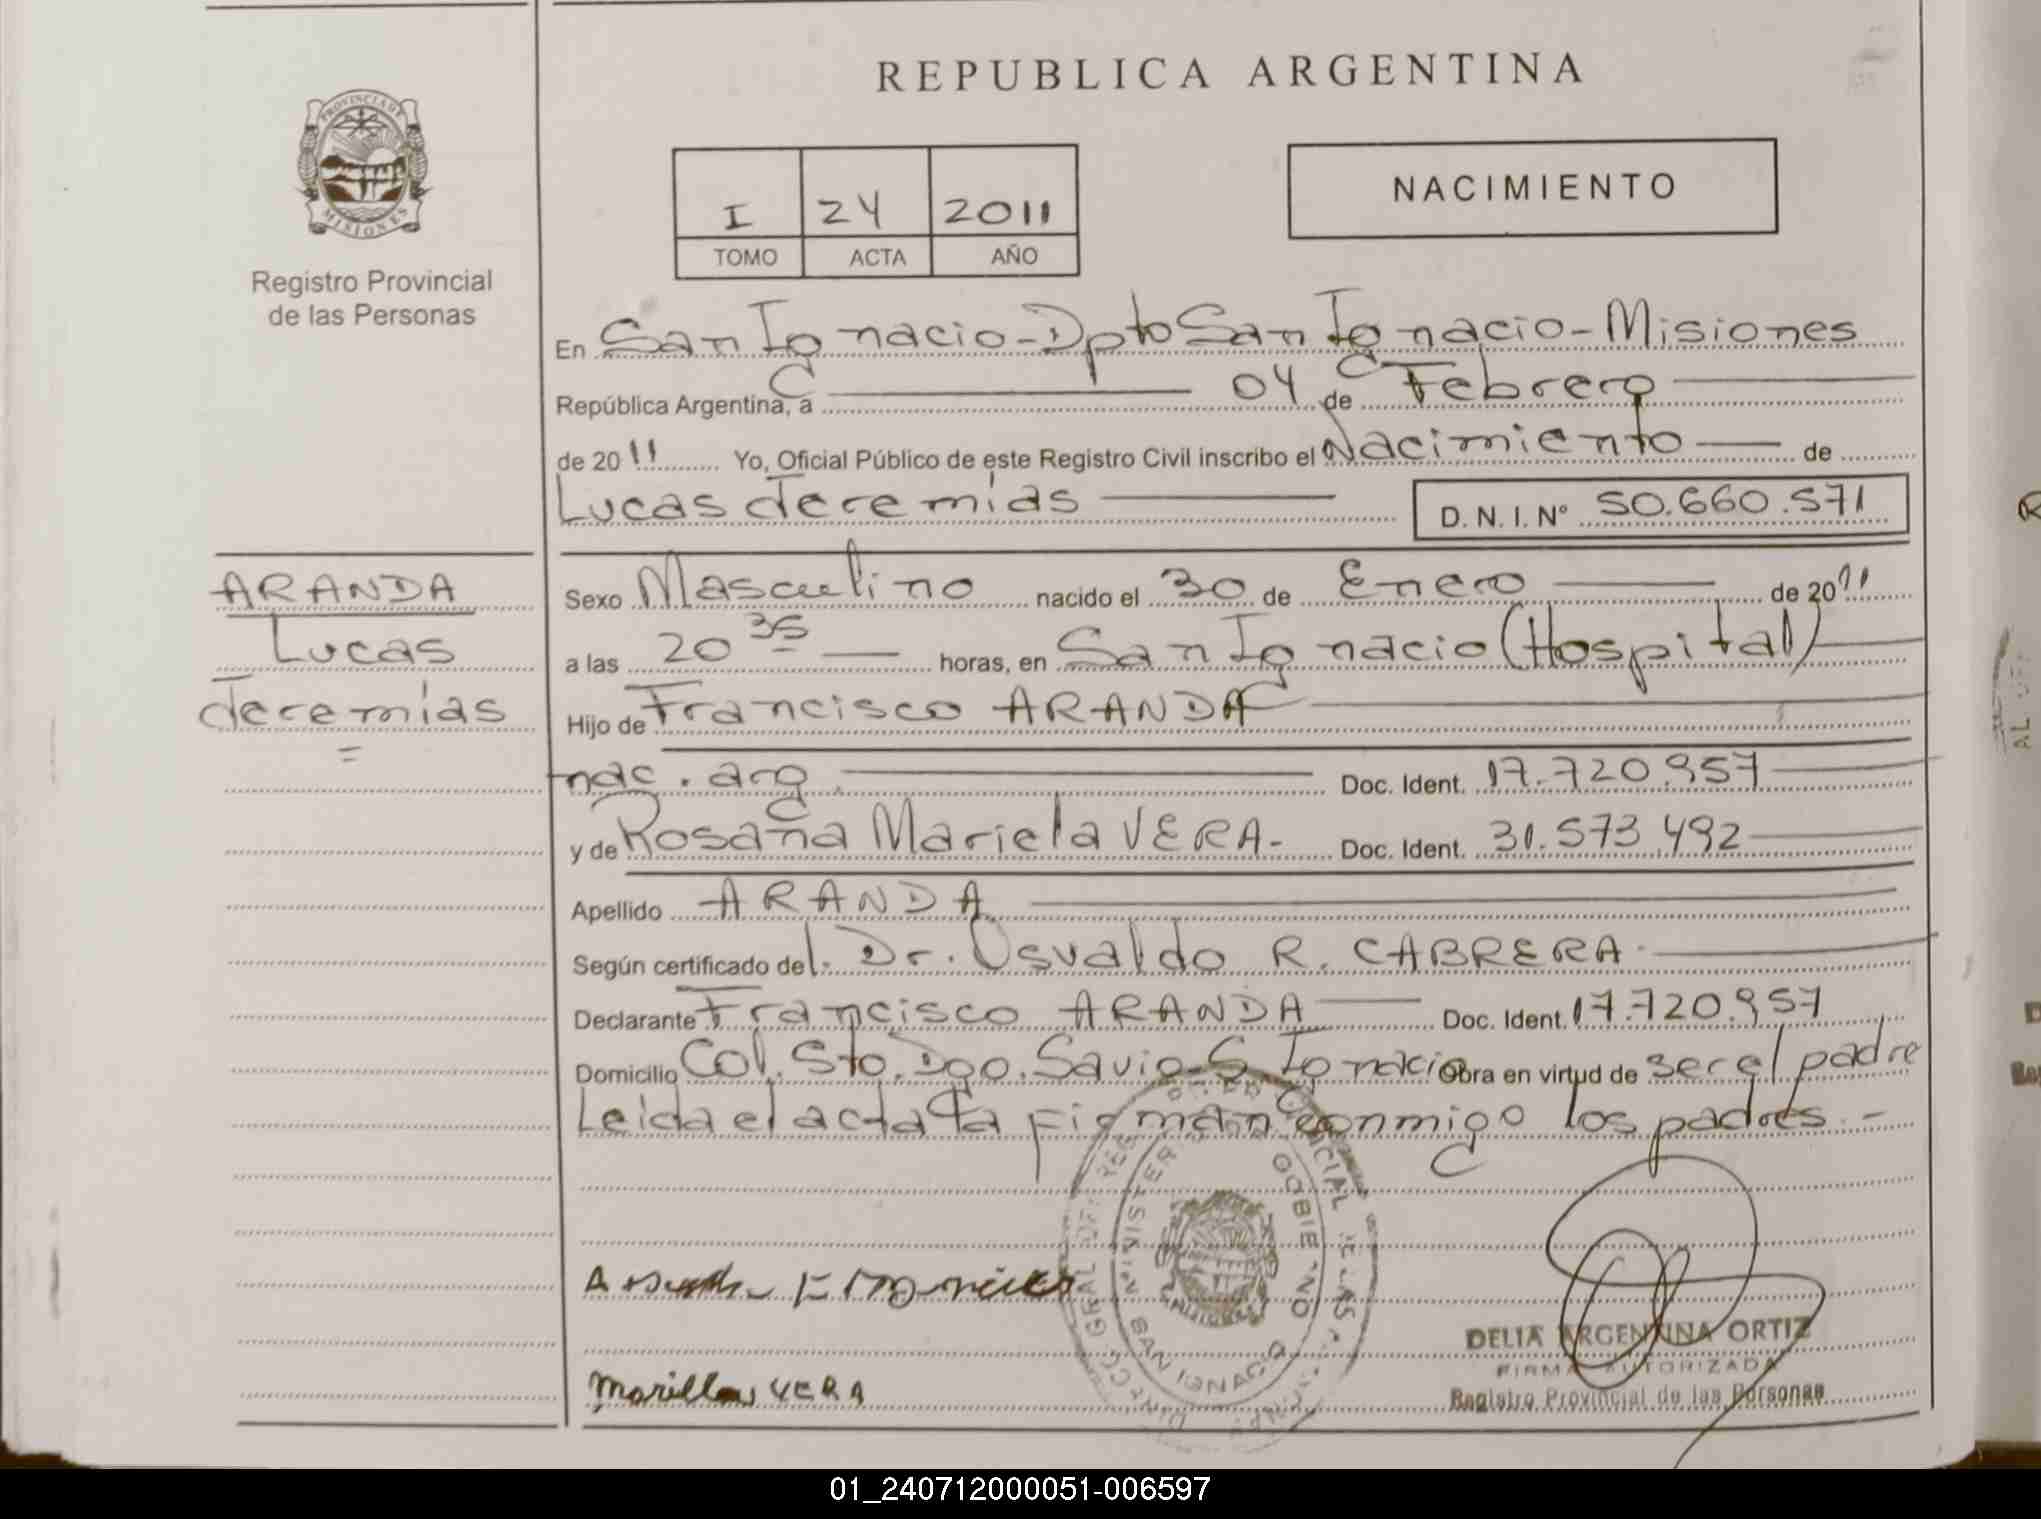 REPUBLICA ARGENTINA
PROVINCIA DE
MISIONES
Registro Provincial
de las Personas
I 24 2011
TOMO ACTA AÑO
NACIMIENTO
En San Ignacio - Dpto San Ignacio - Misiones
República Argentina, a 04 de Febrero
de 2011 Yo, Oficial Público de este Registro Civil inscribo el Nacimiento de
Lucas Jeremías D. N. I. N° 50.660.571
ARANDA
Lucas
Jeremías
Sexo Masculino nacido el 30 de Enero de 2011
a las 20 35 horas, en San Ignacio (Hospital)
Hijo de Francisco ARANDA
nac. arg. Doc. Ident. 17.720.957
y de Rosana Mariela VERA.- Doc. Ident. 31.573.492
Apellido ARANDA
Según certificado del. Dr. Osvaldo R. CABRERA.
Declarante Francisco ARANDA Doc. Ident. 17.720.957
Domicilio Col. Sto. Dgo. Savio - S. Ignacio Obra en virtud de ser el padre
Leida el acta la firman conmigo los padres.-
SAN IGNACIO
DELIA ARGENTINA ORTIZ
FIRMA AUTORIZADA
Registro Provincial de las Personas
VERA
01_240712000051-006597